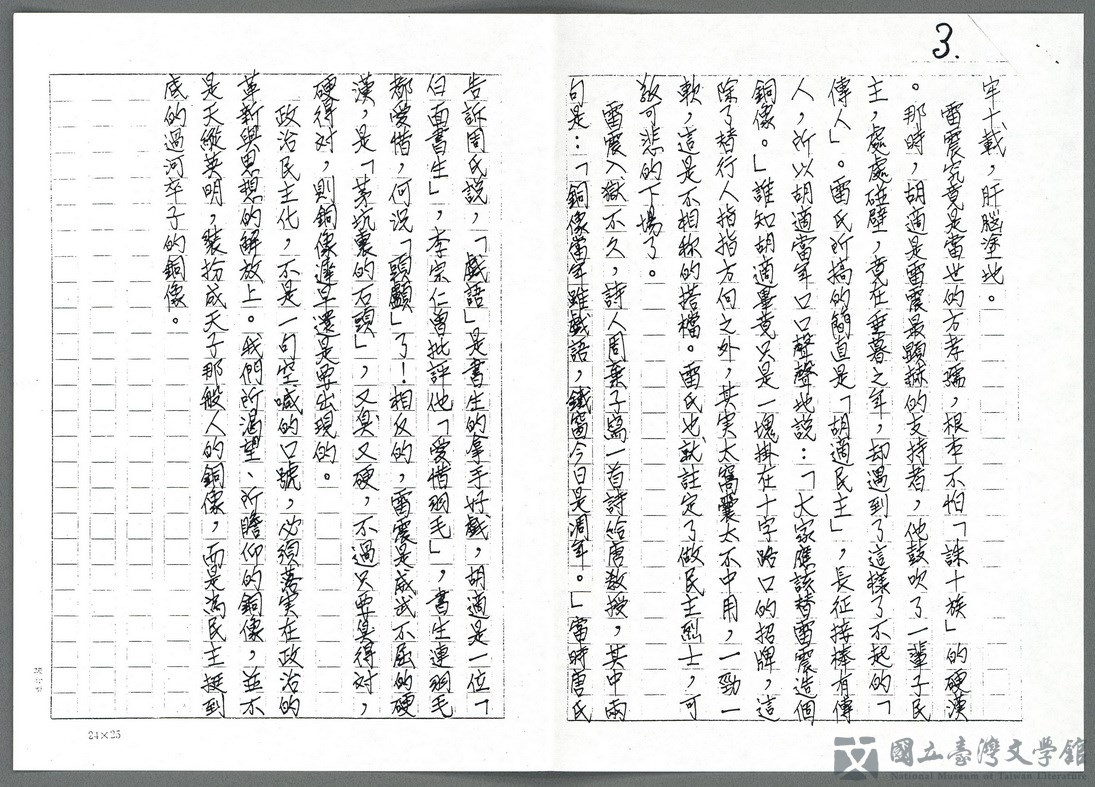 3.
牢十載，肝腦塗地。
雷震究竟是當世的方孝孺，根本不怕「誅十族」的硬漢
。那時，胡適是雷震最顯赫的支持者，他鼓吹了一輩子民
主，處處碰壁，竟在垂暮之年，却遇到了這樣了不起的「
傳人」。雷氏所搞的簡直是「胡適民主」，長征接棒有傳
人，所以胡適當年口口聲聲地說：「大家應該替雷震造個
銅像。」誰知胡適畢竟只是一塊掛在十字路口的招牌，這
除了替行人指指方向之外，其实太窩囊太不中用，一勁一
軟，這是不相称的搭檔。雷氏也就註定了做民主烈士，可
敬可悲的下場了。
雷震入獄不久，詩人周棄子寫一首詩給唐教授，其中兩
句是：「銅像當年雖戲語，鐵窗今日是凋年。」當時唐氏
告訴周氏說，「戲語」是書生的拿手好戲，胡適是一位「
白面書生」，李宗仁曾批評他「愛惜羽毛」，書生連羽毛
都愛惜，何況「頭顱」了！相反的，雷震是威武不屈的硬
漢，是「茅坑裏的石頭」，又臭又硬，不過只要臭得对，
硬得对，則銅像遲早還是要出現的。
政治民主化，不是一句空喊的口號，必須落实在政治的
革新與思想的解放上。我們所渴望、所瞻仰的銅像，並不
是天縱英明，裝扮成天子那般人的銅像，而是為民主挺到
底的過河卒子的銅像。
24×25
國立臺灣文學館
National Museum of Taiwan Literature